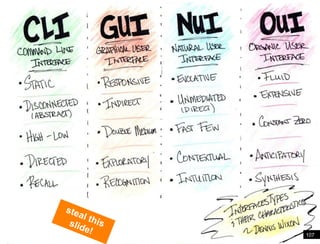 CLI
COMMAND LINE
INTERFACE
• STATIC
• DISCONNECTED
(ABSTRACT)
• HIGH-LOW
• DIRECTED
• RECALL
GUI
GRAPHICAL USER
INTERFACE
• RESPONSIVE
• INDIRECT
• DOUBLE MEDIUM
• EXPLORATORY
• RECOGNITION
NUI
NATURAL USER
INTERFACE
• EVOCATIVE
• UNMEDIATED
(DIRECT)
• FAST FEW
• CONTEXTUAL
• INTUITION
OUI
ORGANIC USER
INTERFACE
• FLUID
• EXTENSIVE
• CONSTANT ZERO
• ANTICIPATORY
• SYNTHESIS
steal this
slide!
INTERFACES TYPES
& THEIR CHARACTERISTICS
~ DENNIS WIXON
107